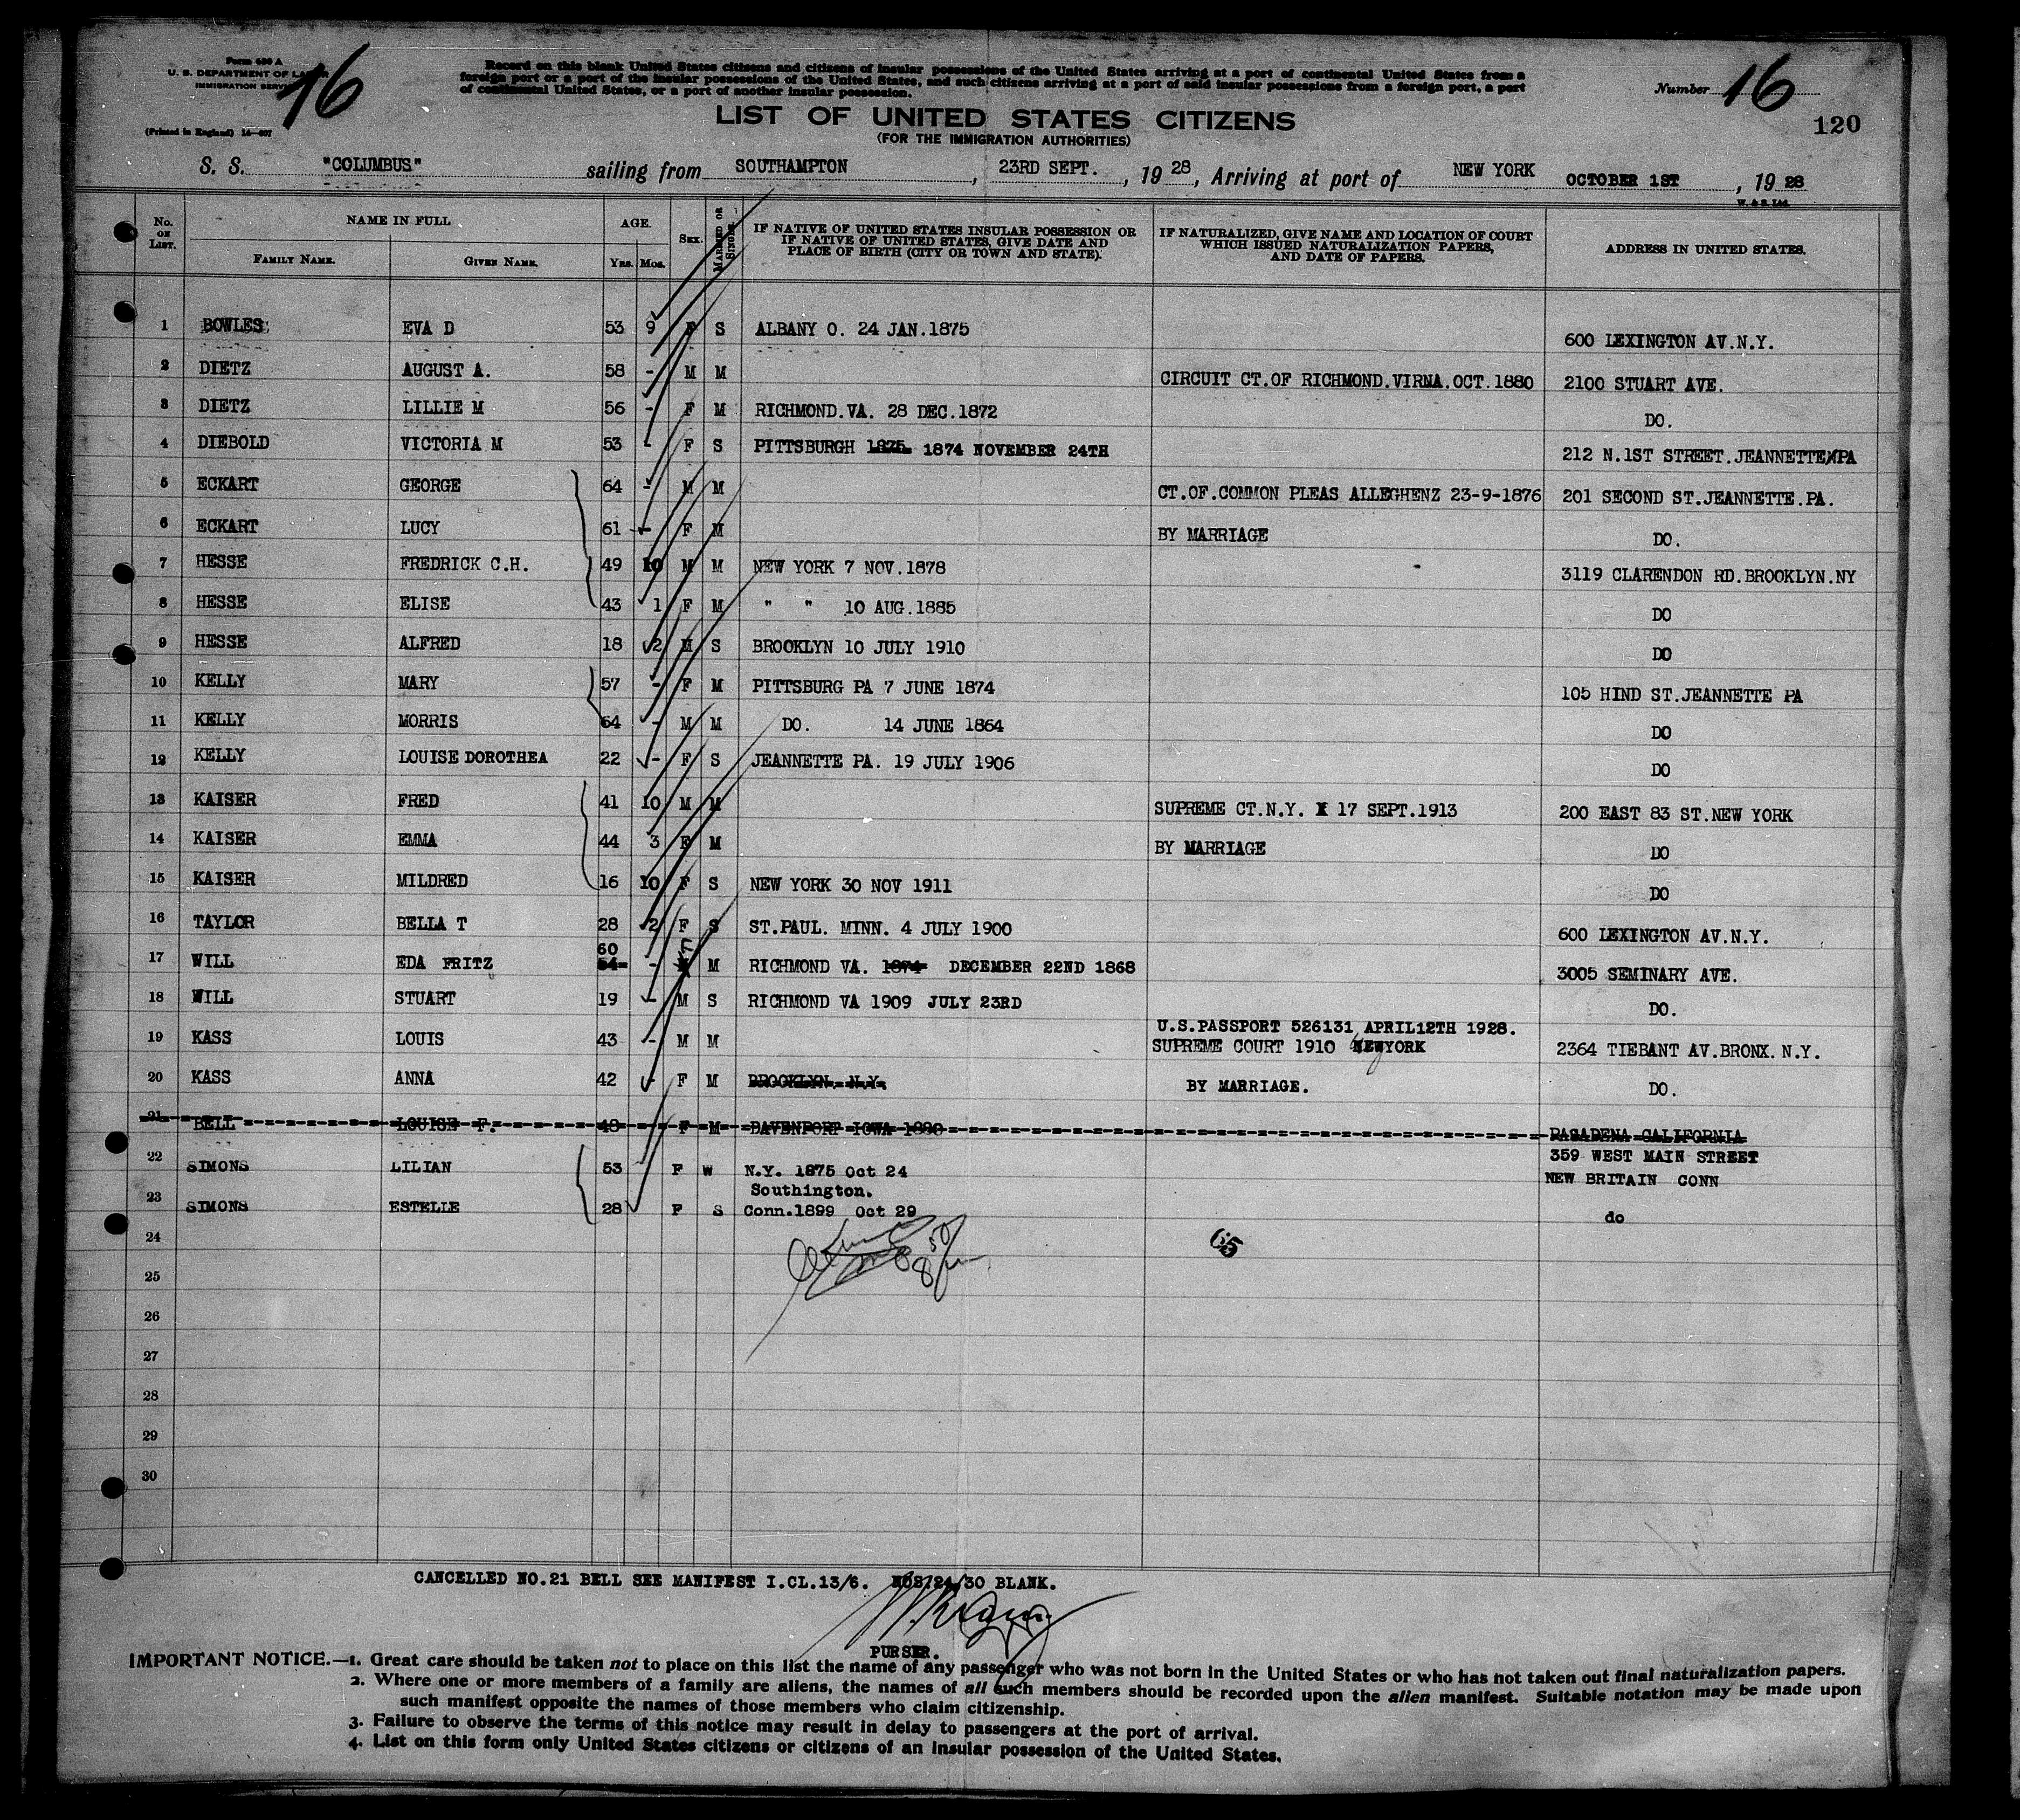 Form 630 A
U. S. DEPARTMENT OF LABOR
IMMIGRATION SERVICE
16
(Printed in England) 14—607
Record on this blank United States citizens and citizens of insular possessions of the United States arriving at a port of continental United States from a
foreign port or a port of the insular possessions of the United States, and such citizens arriving at a port of said insular possessions from a foreign port, a port
of continental United States, or a port of another insular possession.
Number 16
120
LIST OF UNITED STATES CITIZENS
(FOR THE IMMIGRATION AUTHORITIES)
S. S. "COLUMBUS" sailing from SOUTHAMPTON, 23RD SEPT., 19 28, Arriving at port of NEW YORK OCTOBER 1ST, 19 28
W. & S. Ltd.
No. ON LIST. NAME IN FULL FAMILY NAME. GIVEN NAME. AGE. Yrs. Mos. SEX. MARRIED OR SINGLE. IF NATIVE OF UNITED STATES INSULAR POSSESSION OR IF NATIVE OF UNITED STATES, GIVE DATE AND PLACE OF BIRTH (CITY OR TOWN AND STATE). IF NATURALIZED, GIVE NAME AND LOCATION OF COURT WHICH ISSUED NATURALIZATION PAPERS, AND DATE OF PAPERS. ADDRESS IN UNITED STATES.
1 BOWLES EVA D 53 9 F S ALBANY O. 24 JAN.1875 600 LEXINGTON AV.N.Y.
2 DIETZ AUGUST A. 58 - M M CIRCUIT CT.OF RICHMOND.VIRNA.OCT.1880 2100 STUART AVE.
3 DIETZ LILLIE M 56 - F M RICHMOND.VA. 28 DEC.1872 DO.
4 DIEBOLD VICTORIA M 53 - F S PITTSBURGH 1875 1874 NOVEMBER 24TH 212 N.1ST STREET.JEANNETTE PA
5 ECKART GEORGE 64 - M M CT.OF.COMMON PLEAS ALLEGHENZ 23-9-1876 201 SECOND ST.JEANNETTE.PA.
6 ECKART LUCY 61 - F M BY MARRIAGE DO.
7 HESSE FREDRICK C.H. 49 10 M M NEW YORK 7 NOV.1878 3119 CLARENDON RD.BROOKLYN.NY
8 HESSE ELISE 43 1 F M " " 10 AUG.1885 DO
9 HESSE ALFRED 18 2 M S BROOKLYN 10 JULY 1910 DO
10 KELLY MARY 57 - F M PITTSBURG PA 7 JUNE 1874 105 HIND ST.JEANNETTE PA
11 KELLY MORRIS 64 - M M DO. 14 JUNE 1864 DO
12 KELLY LOUISE DOROTHEA 22 - F S JEANNETTE PA. 19 JULY 1906 DO
13 KAISER FRED 41 10 M M SUPREME CT.N.Y. X 17 SEPT.1913 200 EAST 83 ST.NEW YORK
14 KAISER EMMA 44 3 F M BY MARRIAGE DO
15 KAISER MILDRED 16 10 F S NEW YORK 30 NOV 1911 DO
16 TAYLOR BELLA T 28 2 F S ST.PAUL. MINN. 4 JULY 1900 600 LEXINGTON AV.N.Y.
60
17 WILL EDA FRITZ 54 - M F M RICHMOND VA. 1874 DECEMBER 22ND 1868 3005 SEMINARY AVE.
18 WILL STUART 19 - M S RICHMOND VA 1909 JULY 23RD DO.
U.S.PASSPORT 526131 APRIL12TH 1928.
19 KASS LOUIS 43 - M M SUPREME COURT 1910 NEWYORK 2364 TIEBANT AV.BRONX. N.Y.
20 KASS ANNA 42 - F M BROOKLYN. N.Y. BY MARRIAGE. DO.
21 BELL LOUISE F. 48 F M DAVENPORT IOWA 1880 PASADENA CALIFORNIA
359 WEST MAIN STREET
22 SIMONS LILIAN 53 F W N.Y. 1875 Oct 24 NEW BRITAIN CONN
Southington.
23 SIMONS ESTELLE 28 F S Conn.1899 Oct 29 do
24
65
25
26
27
28
29
30
CANCELLED NO.21 BELL SEE MANIFEST I.CL.13/6. NOS.24/30 BLANK.
PURSER.
IMPORTANT NOTICE.—1. Great care should be taken not to place on this list the name of any passenger who was not born in the United States or who has not taken out final naturalization papers.
2. Where one or more members of a family are aliens, the names of all such members should be recorded upon the alien manifest. Suitable notation may be made upon
such manifest opposite the names of those members who claim citizenship.
3. Failure to observe the terms of this notice may result in delay to passengers at the port of arrival.
4. List on this form only United States citizens or citizens of an insular possession of the United States.